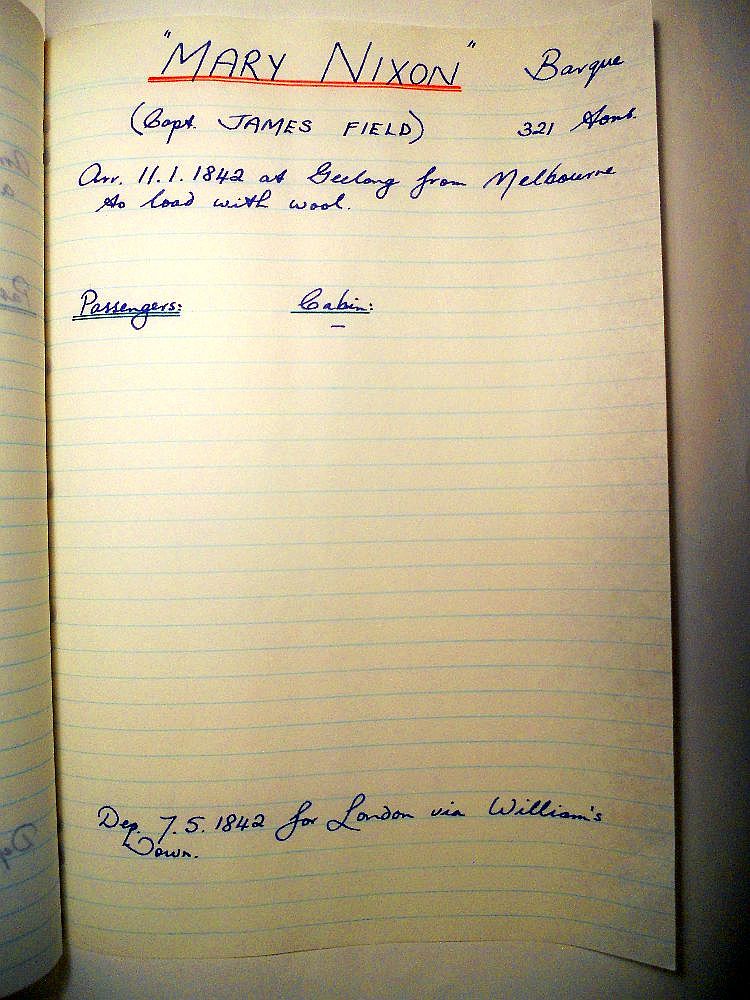 "MARY NIXON" Barque
(Capt. JAMES FIELD) 321 tons.
Arr. 11.1.1842 at Geelong from Melbourne
to load with wool.
Passengers: Cabin:
—
Dep. 7.5.1842 for London via William's
Town.